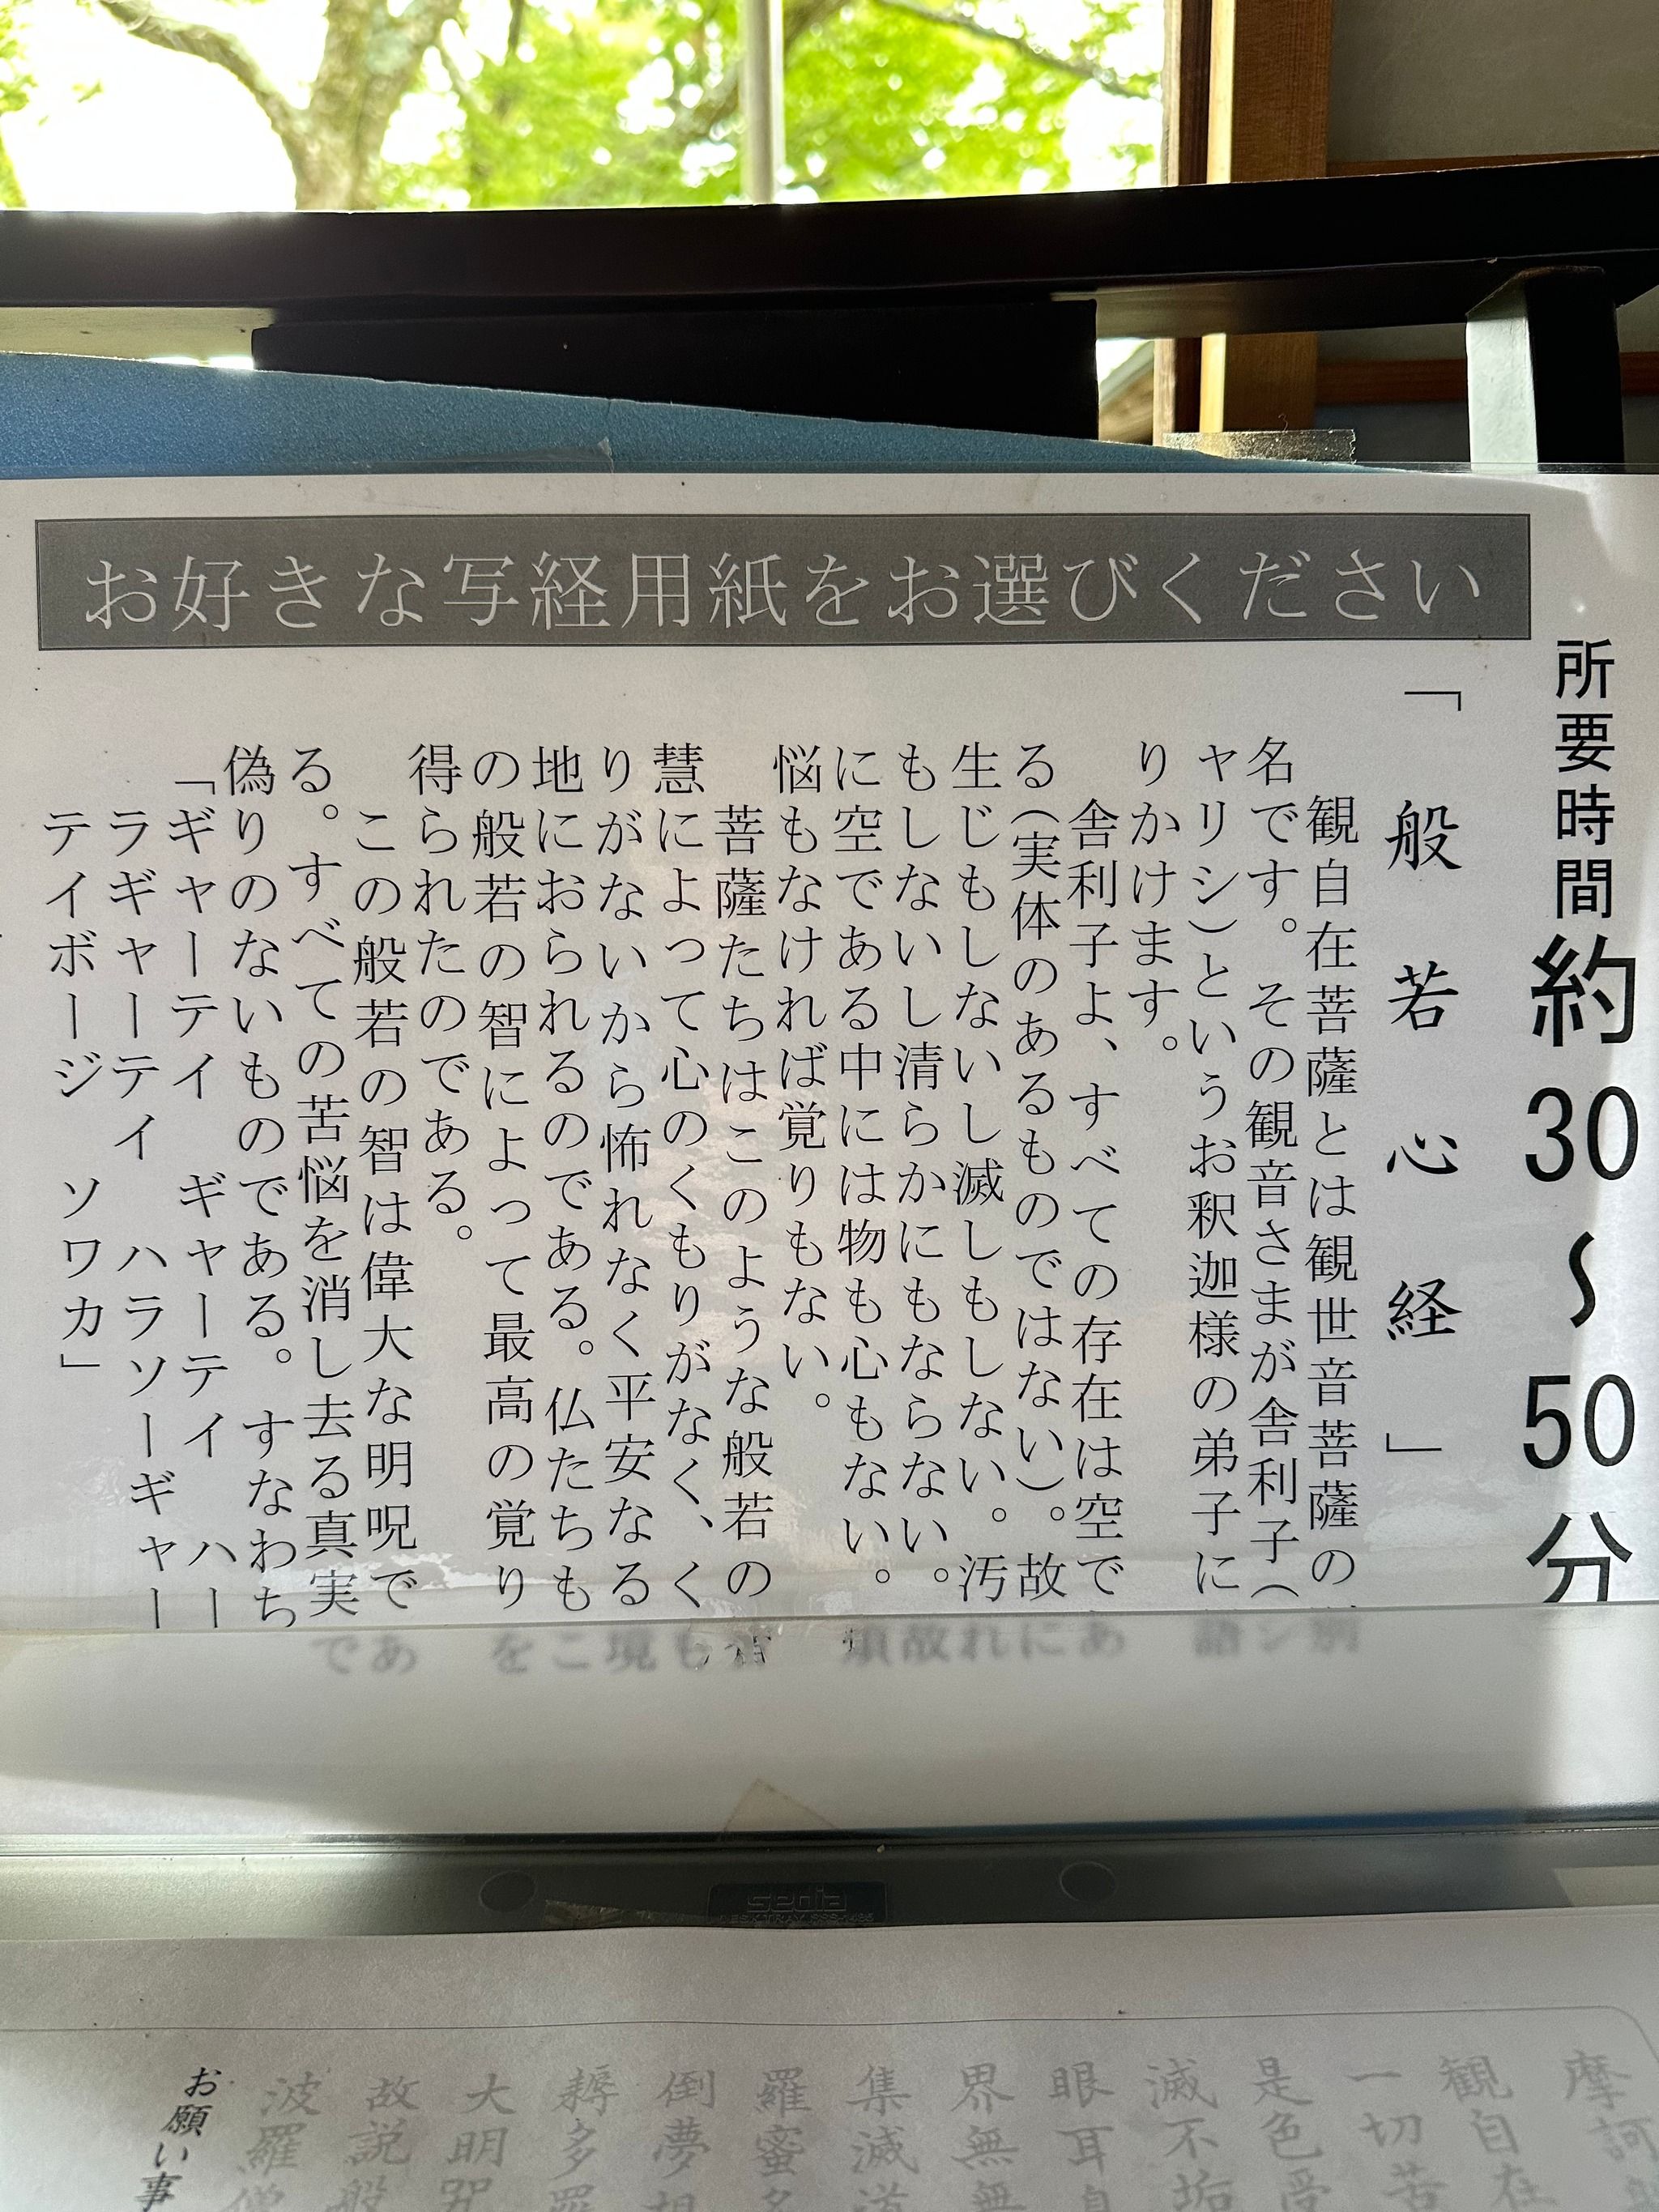 お好きな写経用紙をお選びください
所要時間約30〜50分
「般若心経」
観自在菩薩とは観世音菩薩の別
名です。その観音さまが舎利子（シ
ャリシ）というお釈迦様の弟子に語
りかけます。
舎利子よ、すべての存在は空であ
る（実体のあるものではない）。故に
生じもしないし滅しもしない。汚れ
もしないし清らかにもならない。故
に空である中には物も心もない。煩
悩もなければ覚りもない。
菩薩たちはこのような般若の智
慧によって心のくもりがなく、くも
りがないから怖れなく平安なる境
地におられるのである。仏たちもこ
の般若の智によって最高の覚りを
得られたのである。
この般若の智は偉大な明呪であ
る。すべての苦悩を消し去る真実で
偽りのないものである。すなわち
「ギャーテイ ギャーテイ ハー
ラギャーテイ ハラソーギャー
テイボージ ソワカ」
sedia
摩訶
観自在
一切苦
是色受
滅不垢
眼耳
界無無
集滅道
羅蜜多
倒夢想
耨多羅
大明咒
故説般
波羅僧
お願い事